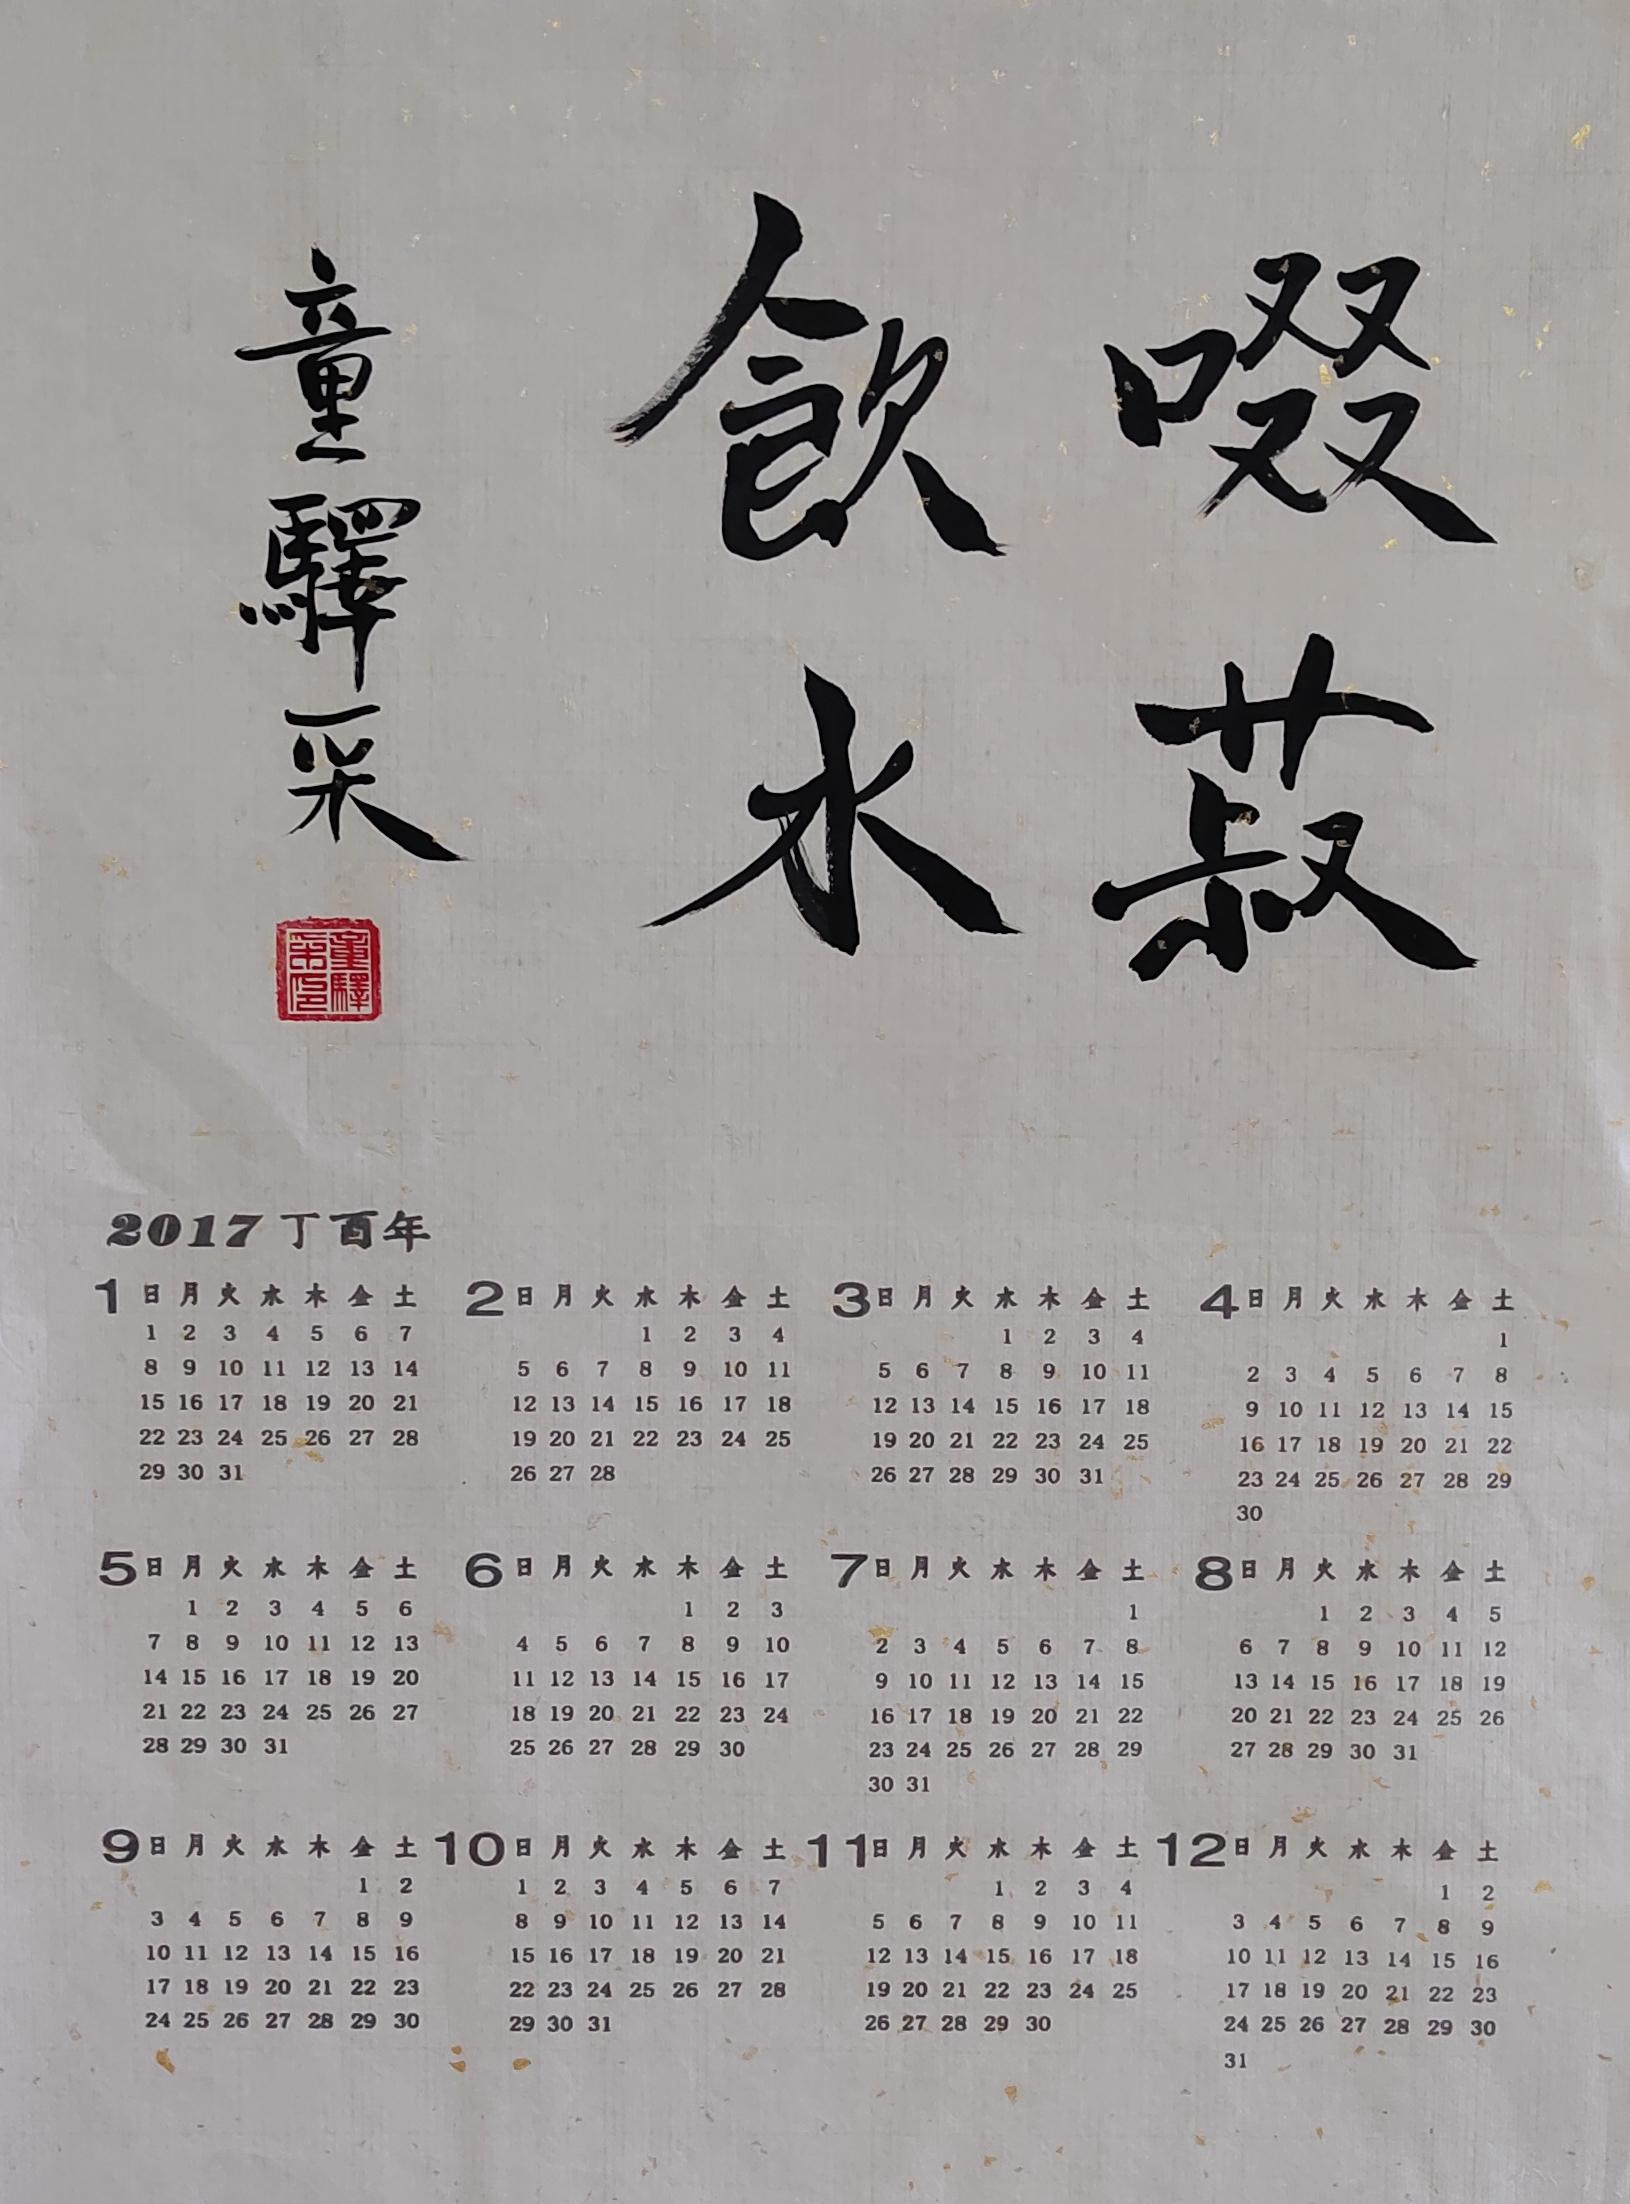 啜菽
飲水
童驛采
童驛
采印
2017 丁酉年
1 日 月 火 水 木 金 土
1 2 3 4 5 6 7
8 9 10 11 12 13 14
15 16 17 18 19 20 21
22 23 24 25 26 27 28
29 30 31
2 日 月 火 水 木 金 土
1 2 3 4
5 6 7 8 9 10 11
12 13 14 15 16 17 18
19 20 21 22 23 24 25
26 27 28
3 日 月 火 水 木 金 土
1 2 3 4
5 6 7 8 9 10 11
12 13 14 15 16 17 18
19 20 21 22 23 24 25
26 27 28 29 30 31
4 日 月 火 水 木 金 土
1
2 3 4 5 6 7 8
9 10 11 12 13 14 15
16 17 18 19 20 21 22
23 24 25 26 27 28 29
30
5 日 月 火 水 木 金 土
1 2 3 4 5 6
7 8 9 10 11 12 13
14 15 16 17 18 19 20
21 22 23 24 25 26 27
28 29 30 31
6 日 月 火 水 木 金 土
1 2 3
4 5 6 7 8 9 10
11 12 13 14 15 16 17
18 19 20 21 22 23 24
25 26 27 28 29 30
7 日 月 火 水 木 金 土
1
2 3 4 5 6 7 8
9 10 11 12 13 14 15
16 17 18 19 20 21 22
23 24 25 26 27 28 29
30 31
8 日 月 火 水 木 金 土
1 2 3 4 5
6 7 8 9 10 11 12
13 14 15 16 17 18 19
20 21 22 23 24 25 26
27 28 29 30 31
9 日 月 火 水 木 金 土
1 2
3 4 5 6 7 8 9
10 11 12 13 14 15 16
17 18 19 20 21 22 23
24 25 26 27 28 29 30
10 日 月 火 水 木 金 土
1 2 3 4 5 6 7
8 9 10 11 12 13 14
15 16 17 18 19 20 21
22 23 24 25 26 27 28
29 30 31
11 日 月 火 水 木 金 土
1 2 3 4
5 6 7 8 9 10 11
12 13 14 15 16 17 18
19 20 21 22 23 24 25
26 27 28 29 30
12 日 月 火 水 木 金 土
1 2
3 4 5 6 7 8 9
10 11 12 13 14 15 16
17 18 19 20 21 22 23
24 25 26 27 28 29 30
31